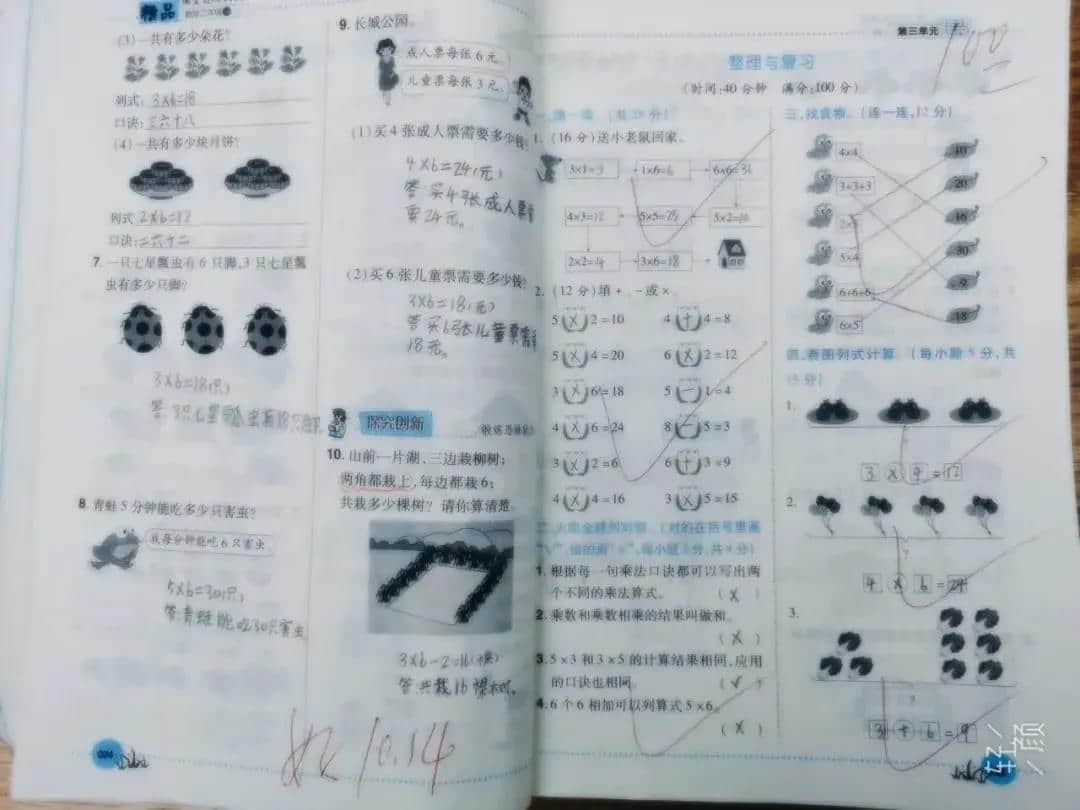 精品
(3) 一共有多少朵花?
列式: 3×6=18
口诀: 三六十八
(4) 一共有多少块月饼?
列式 2×6=12
口诀: 二六十二
7. 一只七星瓢虫有 6 只脚,3 只七星瓢
虫有多少只脚?
3×6=18(只)
8. 青蛙 5 分钟能吃多少只害虫?
我每分钟能吃 6 只害虫
5×6=30(只)
答:青蛙能吃30只害虫
024
9. 长城公园。
成人票每张 6 元。
儿童票每张 3 元。
(1) 买 4 张成人票需要多少钱?
4×6=24(元)
答:买4张成人票
要24元。
(2) 买 6 张儿童票需要多少钱?
3×6=18(元)
答:买6张儿童票需
18元。
探究创新
10. 山前一片湖,三边栽柳树;
两角都栽上,每边都栽 6;
共栽多少棵树? 请你算清楚。
3×6-2=16(棵)
答:共栽16棵
10.14
第三单元
100
整理与复习
(时间:40 分钟 满分:100 分)
1. (16 分)送小老鼠回家。
3×1=3 1×6=6 6×6=36
4×3=12 5×5=25 5×2=10
2×2=4 3×6=18
2. (12 分)填 +、-或×。
5(×)2=10 4(+)4=8
5(×)4=20 6(×)2=12
3(×)6=18 5(-)1=4
4(×)6=24 8(-)5=3
3(×)2=6 6(+)3=9
4(×)4=16 3(×)5=15
1. 根据每一句乘法口诀都可以写出两
个不同的乘法算式。 (×)
2. 乘数和乘数相乘的结果叫做和。
(×)
3. 5×3 和 3×5 的计算结果相同,应用
的口诀也相同。 (√)
4. 6 个 6 相加可以列算式 5×6。
(×)
三、找食物。(连一连,12 分)
4×4 10
3+3+3 20
2×5 16
5×4 30
6+6+6 9
6×5 18
四、看图列式计算。(每小题 5 分,共
15 分)
1.
?
3×4=12
2.
?
4×6=24
3.
?
3+6=9
轻颜